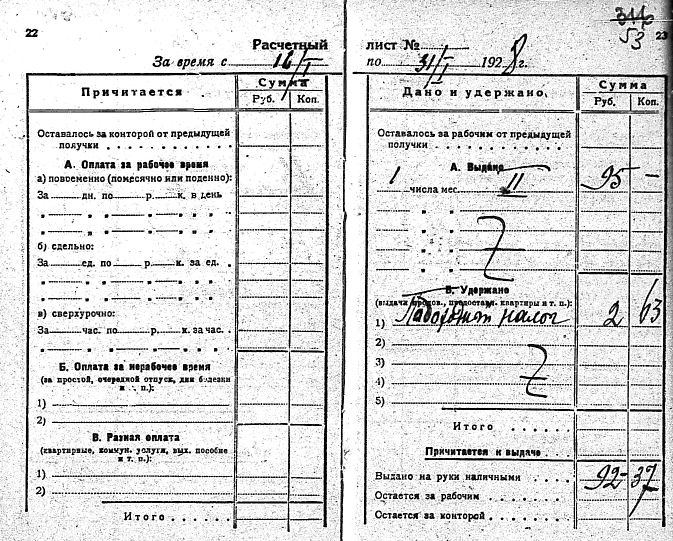 22
Расчетный
За время с 16/I
Сумма
Причитается
Руб. Коп.
Оставалось за конторой от предыдущей
получки
А. Оплата за рабочее время
а) повременно (помесячно или поденно):
За дн. по р. к. в день
„ „ „ „ „
„ „ „ „ „
б) сдельно:
За ед. по р. к. за ед.
„ „ „ „ „
„ „ „ „ „
в) сверхурочно:
За час. по р. к. за час.
„ „ „ „ „
Б. Оплата за нерабочее время
(за простой, очередной отпуск, дни болезни
и т. п.):
1)
2)
В. Разная оплата
(квартирные, коммун. услуги, вых. пособие
и т. п.):
1)
2)
Итого
53 23
лист №
по 31/I 1928 г.
Сумма
Дано и удержано
Руб. Коп.
Оставалось за рабочим от предыдущей
получки
А. Выдано
1 числа мес. II 95 —
„ „
„ „
„ „
„ „
Б. Удержано
(выдача продов., предоставл. квартиры и т. п.):
1) Подоходн налог 2 63
2)
3)
4)
5)
Итого
Причитается к выдаче
Выдано на руки наличными 92 - 37
Остается за рабочим
Остается за конторой